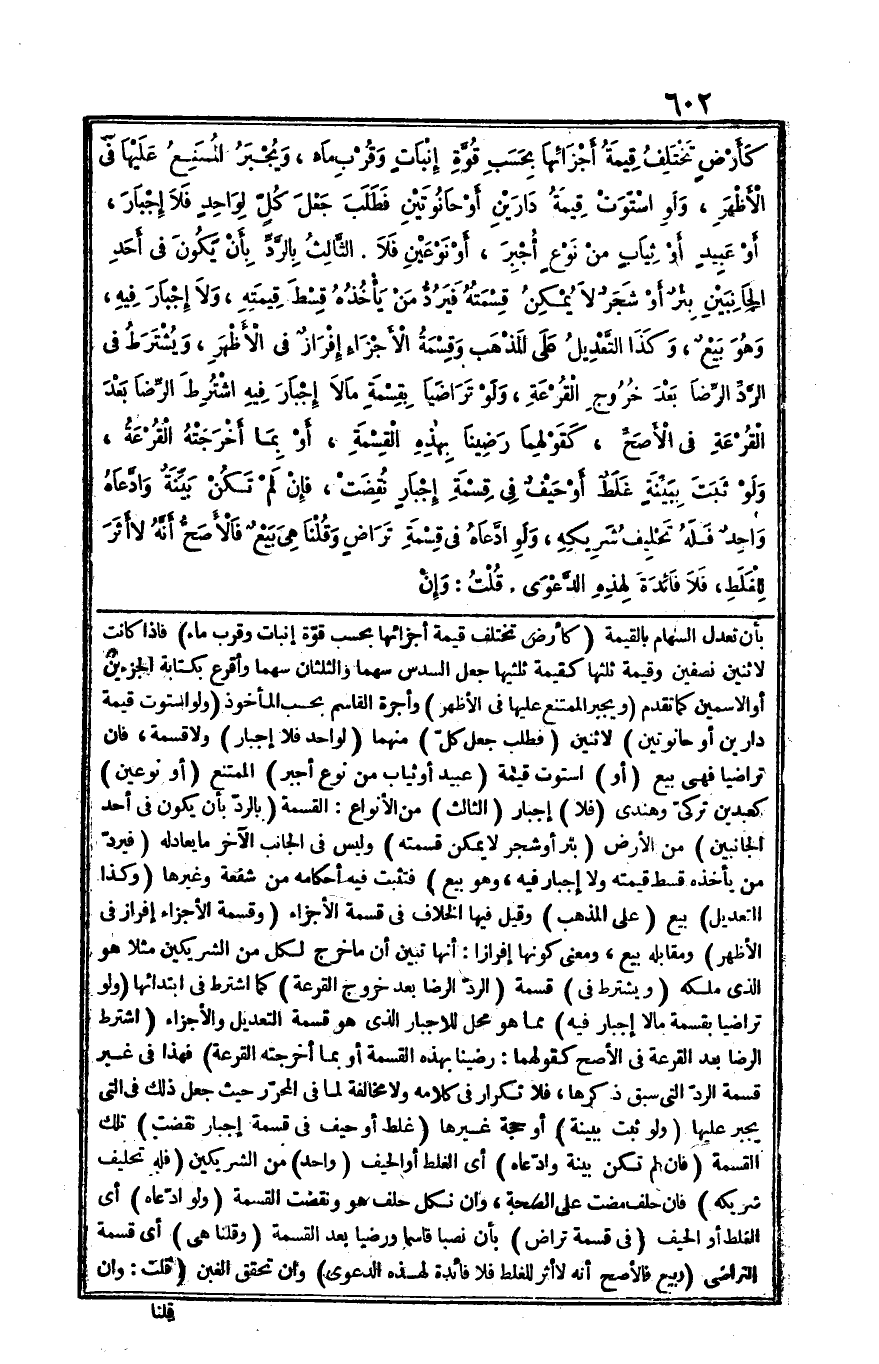 ٦٠٢
كَأَرْضٍ تَخْتَلِفُ قِيمَةُ أَجْزَائِهَا بِحَسَبِ قُوَّةِ إِنْبَاتٍ وَقُرْبِ مَاءٍ ، وَيُجْبَرُ الْمُمْتَنِعُ عَلَيْهَا فِى
الْأَظْهَرِ ، وَلَوِ اسْتَوَتْ قِيمَةُ دَارَيْنِ أَوْ حَانُوتَيْنِ فَطَلَبَ جَعْلَ كُلٍّ لِوَاحِدٍ فَلَا إِجْبَارَ ،
أَوْ عَبِيدٍ أَوْ ثِيَابٍ مِنْ نَوْعٍ أُجْبِرَ ، أَوْ نَوْعَيْنِ فَلَا . الثَّالِثُ بِالرَّدِّ بِأَنْ يَكُونَ فِى أَحَدِ
الْجَانِبَيْنِ بِئْرٌ أَوْ شَجَرٌ لَا يُمْكِنُ قِسْمَتُهُ فَيَرُدُّ مَنْ يَأْخُذُهُ قِسْطَ قِيمَتِهِ ، وَلَا إِجْبَارَ فِيهِ ،
وَهُوَ بَيْعٌ ، وَكَذَا التَّعْدِيلُ عَلَى الْمَذْهَبِ وَقِسْمَةُ الْأَجْزَاءِ إِفْرَازٌ فِى الْأَظْهَرِ ، وَيُشْتَرَطُ فِى
الرَّدِّ الرِّضَا بَعْدَ خُرُوجِ الْقُرْعَةِ ، وَلَوْ تَرَاضَيَا بِقِسْمَةِ مَالَا إِجْبَارَ فِيهِ اشْتُرِطَ الرِّضَا بَعْدَ
الْقُرْعَةِ فِى الْأَصَحِّ ، كَقَوْلِهِمَا رَضِينَا بِهٰذِهِ الْقِسْمَةِ ، أَوْ بِمَا أَخْرَجَتْهُ الْقُرْعَةُ ،
وَلَوْ ثَبَتَ بِبَيِّنَةٍ غَلَطٌ أَوْ حَيْفٌ فِى قِسْمَةِ إِجْبَارٍ نُقِضَتْ ، فَإِنْ لَمْ تَكُنْ بَيِّنَةٌ وَادَّعَاهُ
وَاحِدٌ فَلَهُ تَحْلِيفُ شَرِيكِهِ ، وَلَوِ ادَّعَاهُ فِى قِسْمَةِ تَرَاضٍ وَقُلْنَا هِىَ بَيْعٌ فَالْأَصَحُّ أَنَّهُ لَا أَثَرَ
لِلْغَلَطِ ، فَلَا فَائِدَةَ لِهٰذِهِ الدَّعْوَى . قُلْتُ : وَإِنْ
بأن تعدل السهام بالقيمة ( كأرض تختلف قيمة أجزائها بحسب قوّة إنبات وقرب ماء ) فاذا كانت
لاثنين نصفين وقيمة ثلثها كقيمة ثلثيها جعل السدس سهما والثلثان سهما وأقرع بكتابة الجزءين
أو الاسمين كما تقدم ( ويجبر الممتنع عليها فى الأظهر ) وأجرة القاسم بحسب المأخوذ ( ولو استوت قيمة
دارين أو حانوتين ) لاثنين ( فطلب جعل كلّ ) منهما ( لواحد فلا إجبار ) ولا قسمة ، فان
تراضيا فهى بيع ( أو ) استوت قيمة ( عبيد أو ثياب من نوع أجبر ) الممتنع ( أو نوعين )
كعبدين تركىّ وهندى ( فلا ) إجبار ( الثالث ) من الأنواع : القسمة ( بالردّ بأن يكون فى أحد
الجانبين ) من الأرض ( بئر أو شجر لا يمكن قسمته ) وليس فى الجانب الآخر ما يعادله ( فيردّ
من يأخذه قسط قيمته ولا إجبار فيه ، وهو بيع ) فتثبت فيه أحكامه من شفعة وغيرها ( وكذا
التعديل ) بيع ( على المذهب ) وقيل فيها الخلاف فى قسمة الأجزاء ( وقسمة الأجزاء إفراز فى
الأظهر ) ومقابله بيع ، ومعنى كونها إفرازا : أنها تبين أن ماخرج لكل من الشريكين مثلا هو
الذى ملكه ( ويشترط فى ) قسمة ( الردّ الرضا بعد خروج القرعة ) كما اشترط فى ابتدائها ( ولو
تراضيا بقسمة مالا إجبار فيه ) مما هو محل للاجبار الذى هو قسمة التعديل والأجزاء ( اشترط
الرضا بعد القرعة فى الأصح كقولهما : رضينا بهذه القسمة أو بما أخرجته القرعة ) فهذا فى غير
قسمة الردّ التى سبق ذكرها ، فلا تكرار فى كلامه ولا مخالفة لما فى المحرّر حيث جعل ذلك فى التى
يجبر عليها ( ولو ثبت ببينة ) أو حجة غيرها ( غلط أو حيف فى قسمة إجبار نقضت ) تلك
القسمة ( فان لم تكن بينة وادّعاه ) أى الغلط أو الحيف ( واحد ) من الشريكين ( فله تحليف
شريكه ) فان حلف مضت على الصحة ، وان نكل حلف هو ونقضت القسمة ( ولو ادّعاه ) أى
الغلط أو الحيف ( فى قسمة تراض ) بأن نصبا قاسما ورضيا بعد القسمة ( وقلنا هى ) أى قسمة
التراضى ( بيع فالأصح أنه لا أثر للغلط فلا فائدة لهذه الدعوى ) وان تحقق الغبن ( قلت : وان
قلنا